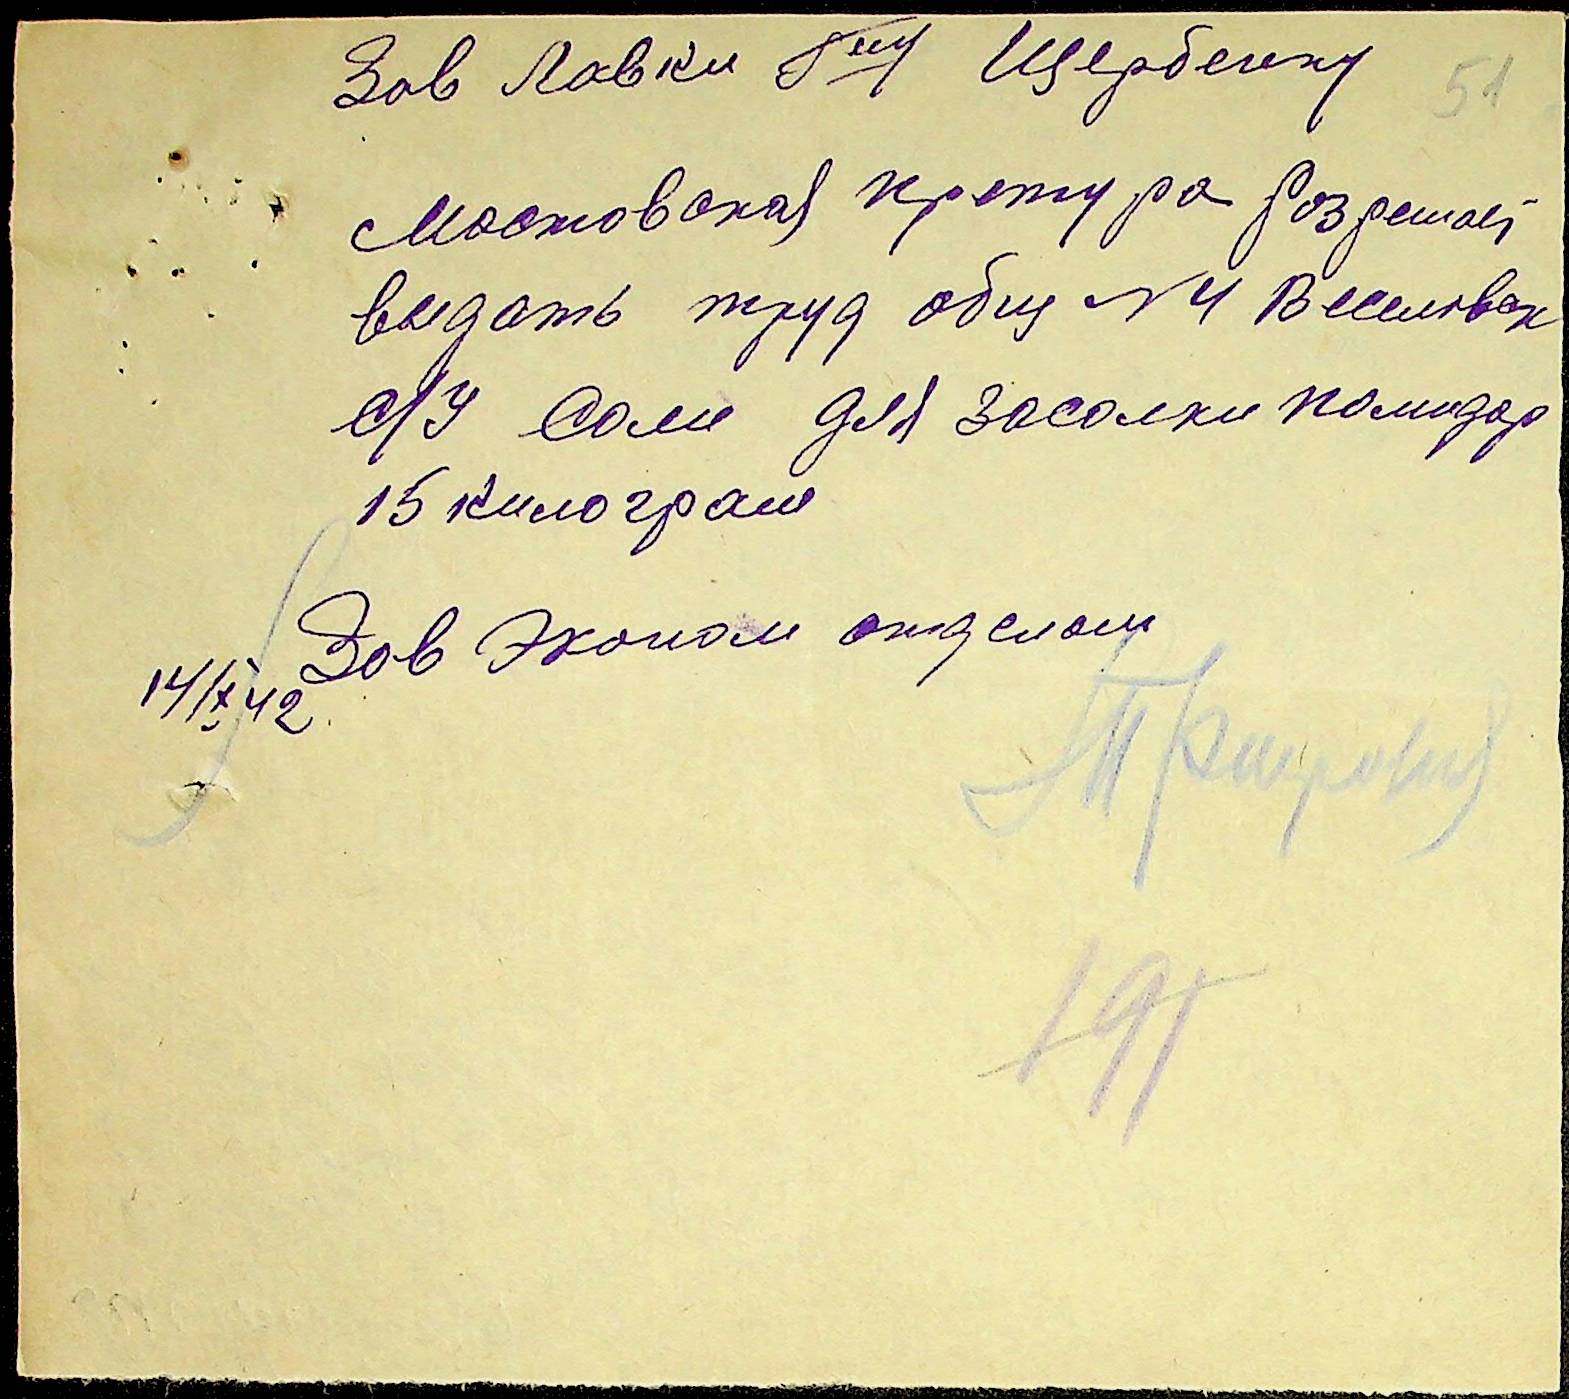 Зав Лавки Гну Щербенку
51
Мостовская упртура Розрешает
выдать труд общ N 4 Веселовск
с/у Соли для засолки помидор
15 килограм
Зав Эконом отделом
14/IX 42
191